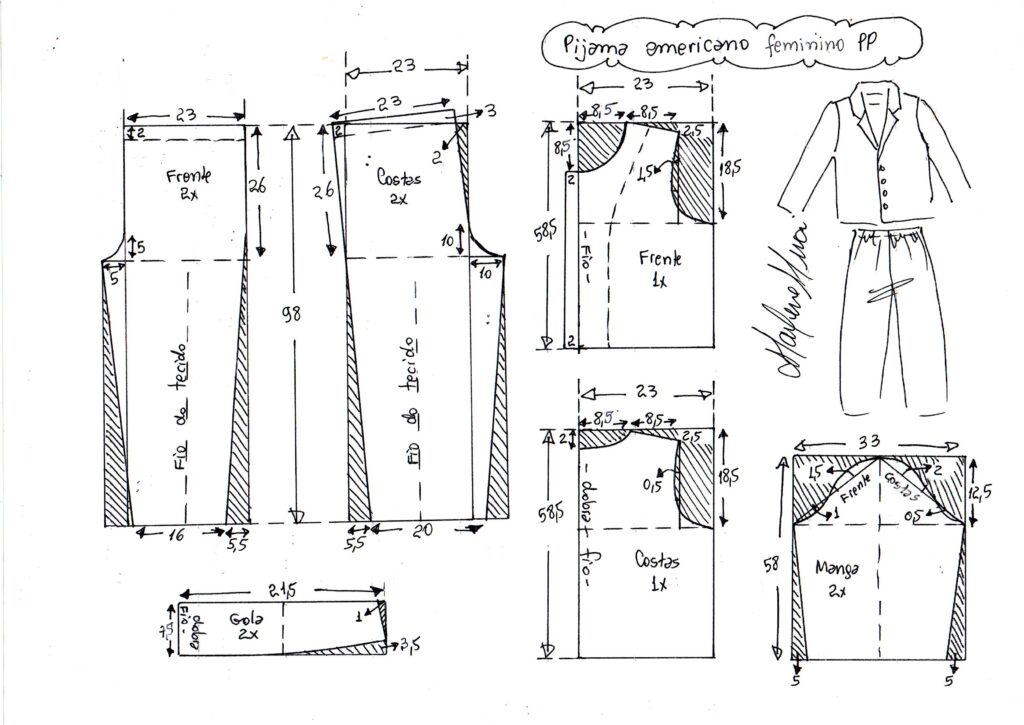 Pijama americano feminino PP
23
2
Frente
2x
26
5
5
Fio do tecido
16
5,5
98
23
23
3
2
2
Costas
2x
26
10
10
Fio do tecido
5,5
20
23
8,5
8,5
8,5
2
2,5
1,5
18,5
58,5
- Fio -
Frente
1x
2
23
8,5
8,5
2
2,5
0,5
18,5
58,5
- dobra + fio -
Costas
1x
33
1,5
2
Frente
Costas
1
0,5
12,5
58
Manga
2x
5
5
21,5
7,5
Fio -
dobra
Gola
2x
1
3,5